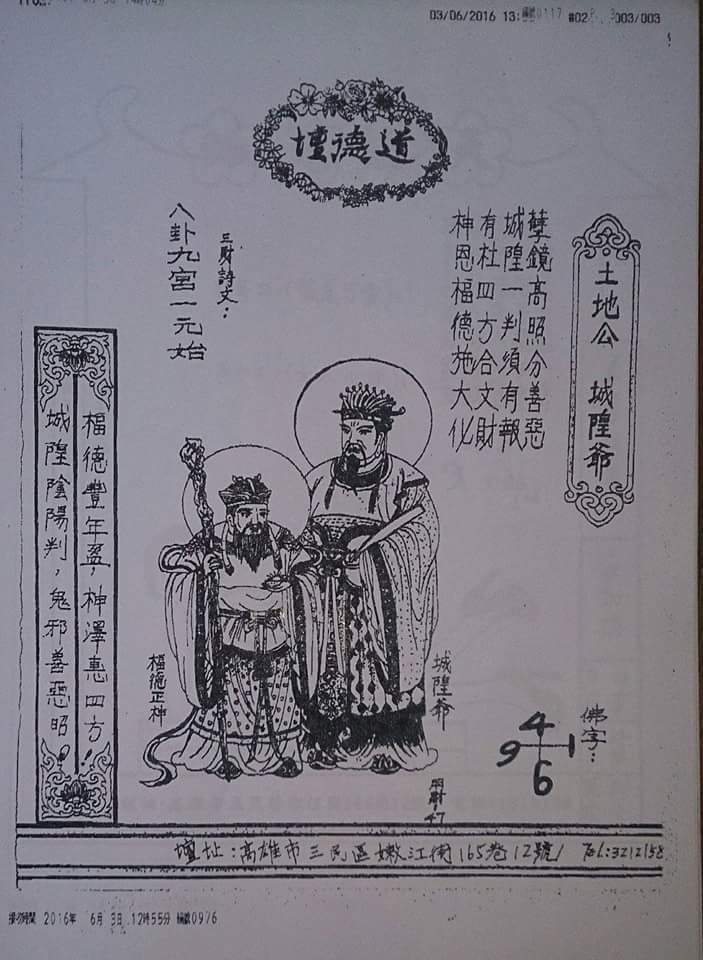 03/06/2016 13:
#02
003/003
道德壇
土地公 城隍爺
孽鏡高照分善惡
城隍一判須有報
有社四方合文財
神恩福德施大化
三財詩文：
八卦九宮一元始
福德豐年盈，神澤惠四方！
城隍陰陽判，鬼邪善惡昭！
福德正神
城隍爺
佛字：
4
9 1
6
壇址：高雄市三民區嫩江街165巷12號 Tel:3212158
2016年 6月 3日 12時55分 編號0976